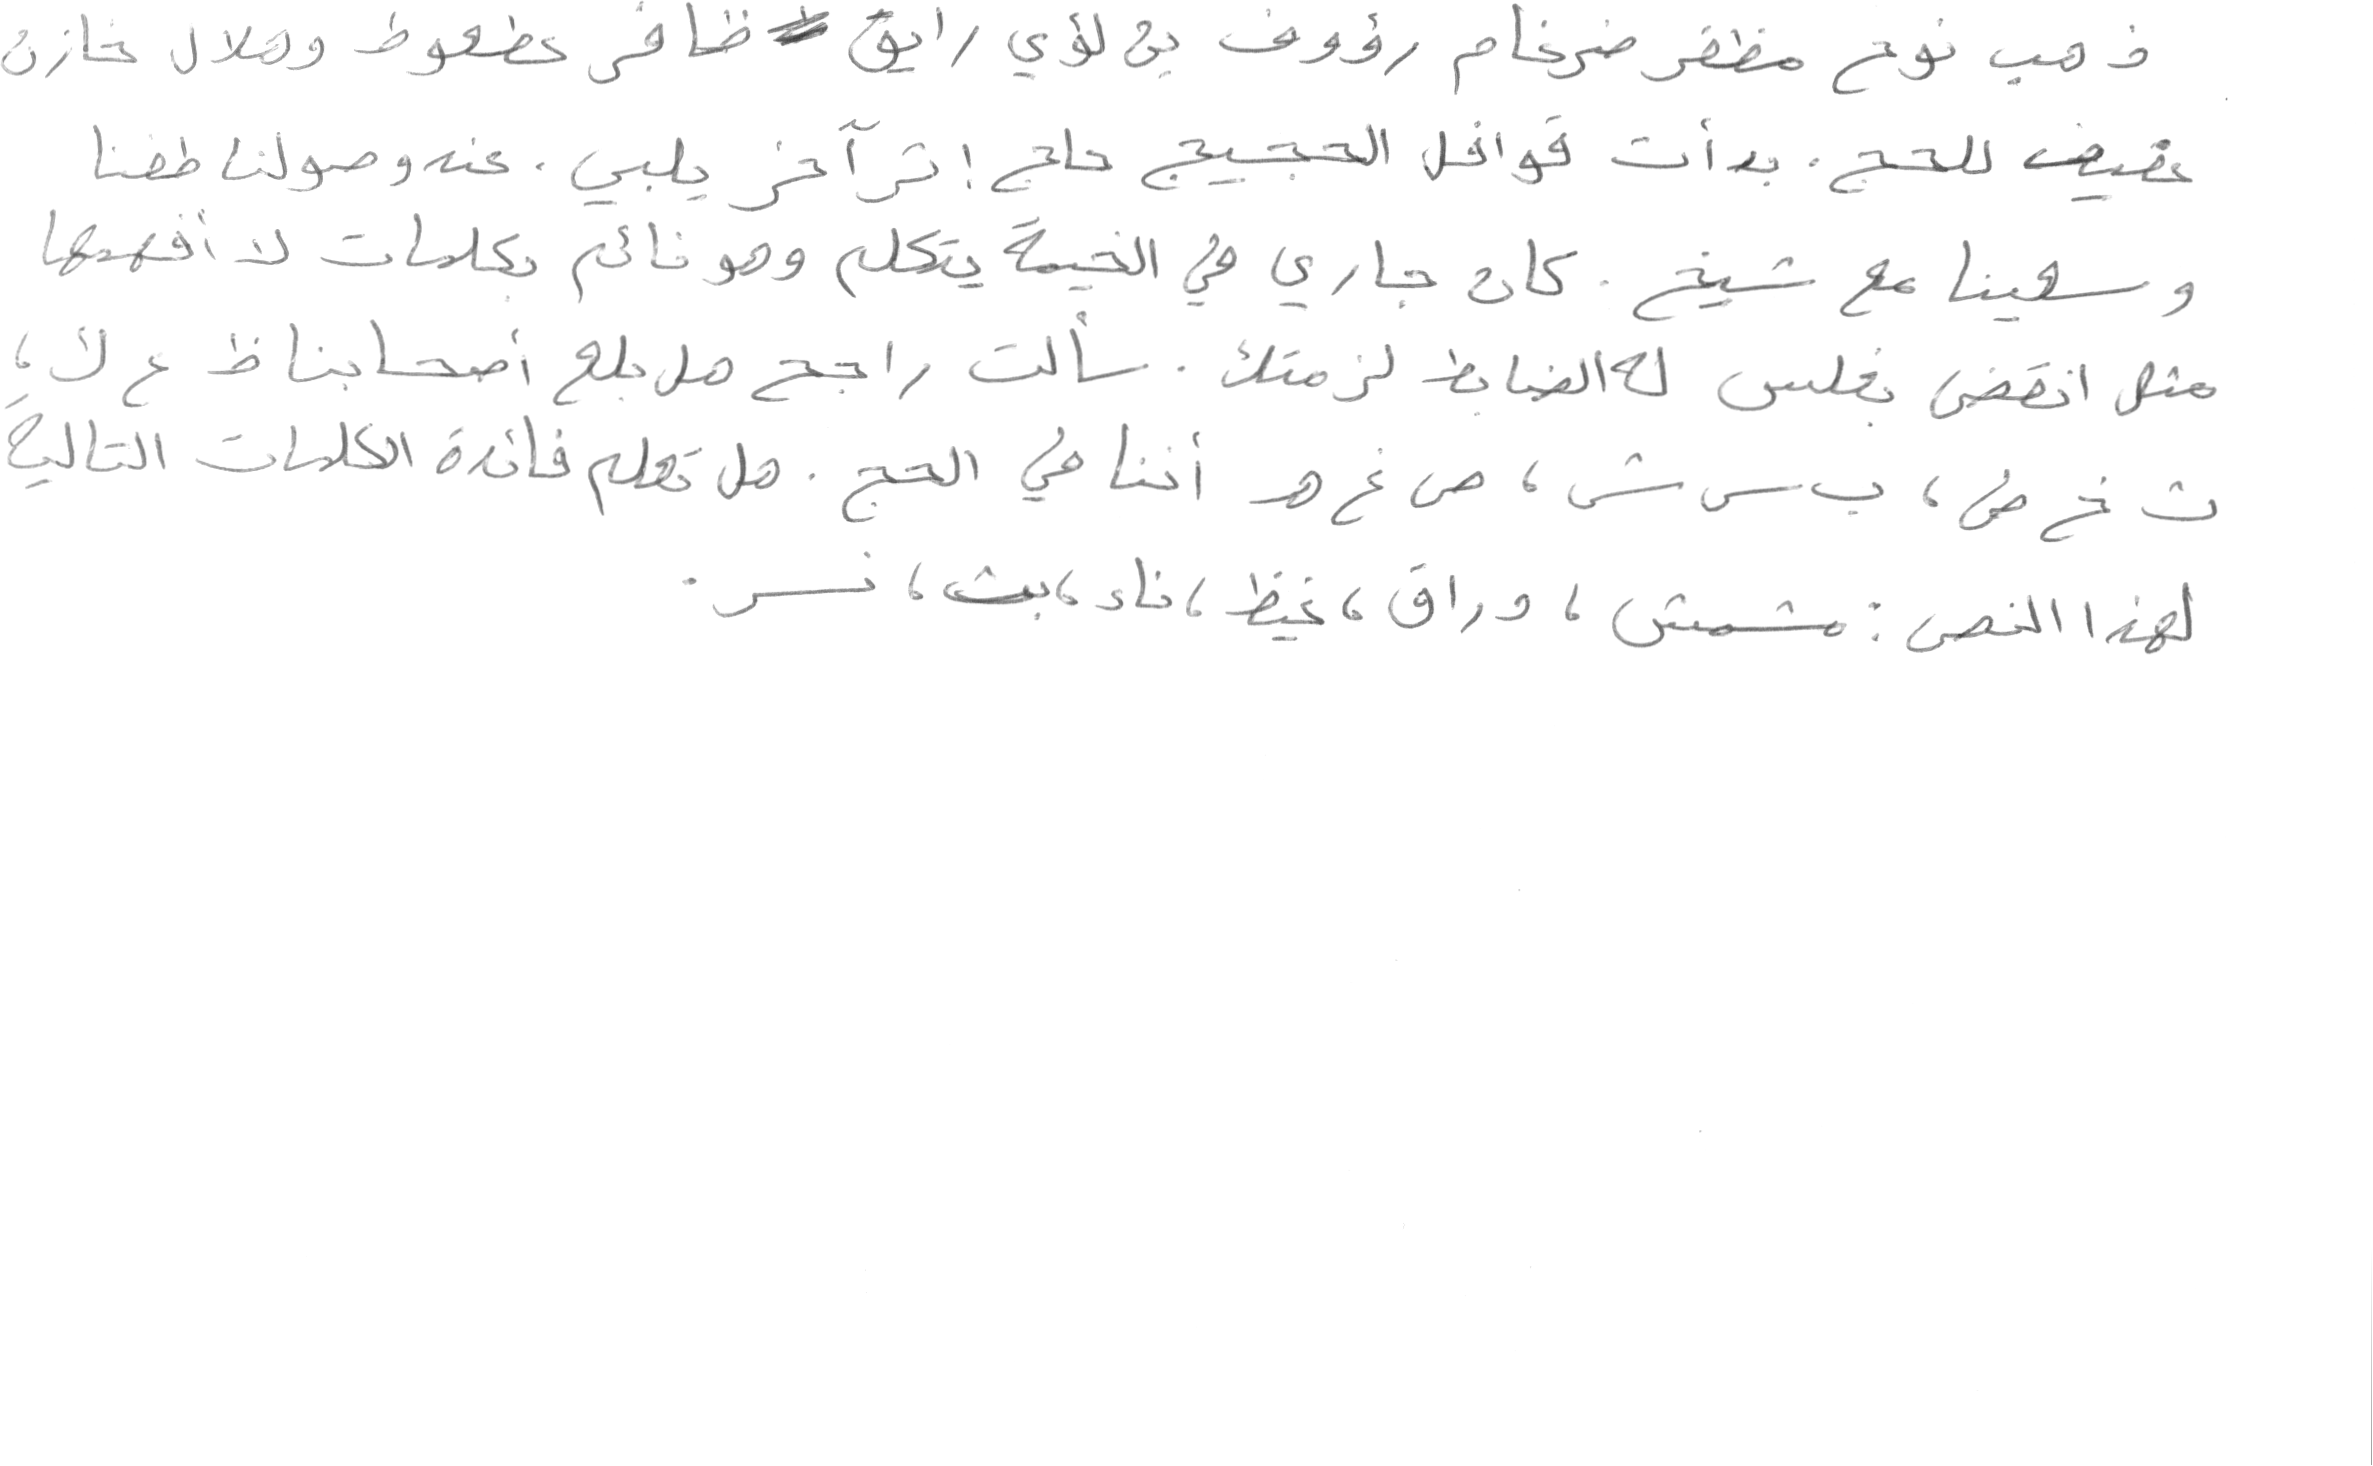 ذهب نوح مظفر ضرغام رؤوف بن لؤي رايق ظافر عطعوط وهلال خازن
عفيف للحج. بدأت قوافل الحجيج حاج إثر آخر يلبي. عند وصولنا طفنا
وسعينا مع شيخ. كان جاري في الخيمة يتكلم وهو نائم بكلمات لا أفهمها
مثل انقض بغلس له الضابط لزمتك. سألت راجح هل بلغ أصحابنا ظ ع ك،
ث خ ض، ب س ش، ص غ هـ أننا في الحج. هل تعلم فائدة الكلمات التالية
لهذا النص: مشمش، دراق، غيظ، ناء، بث، نسر.